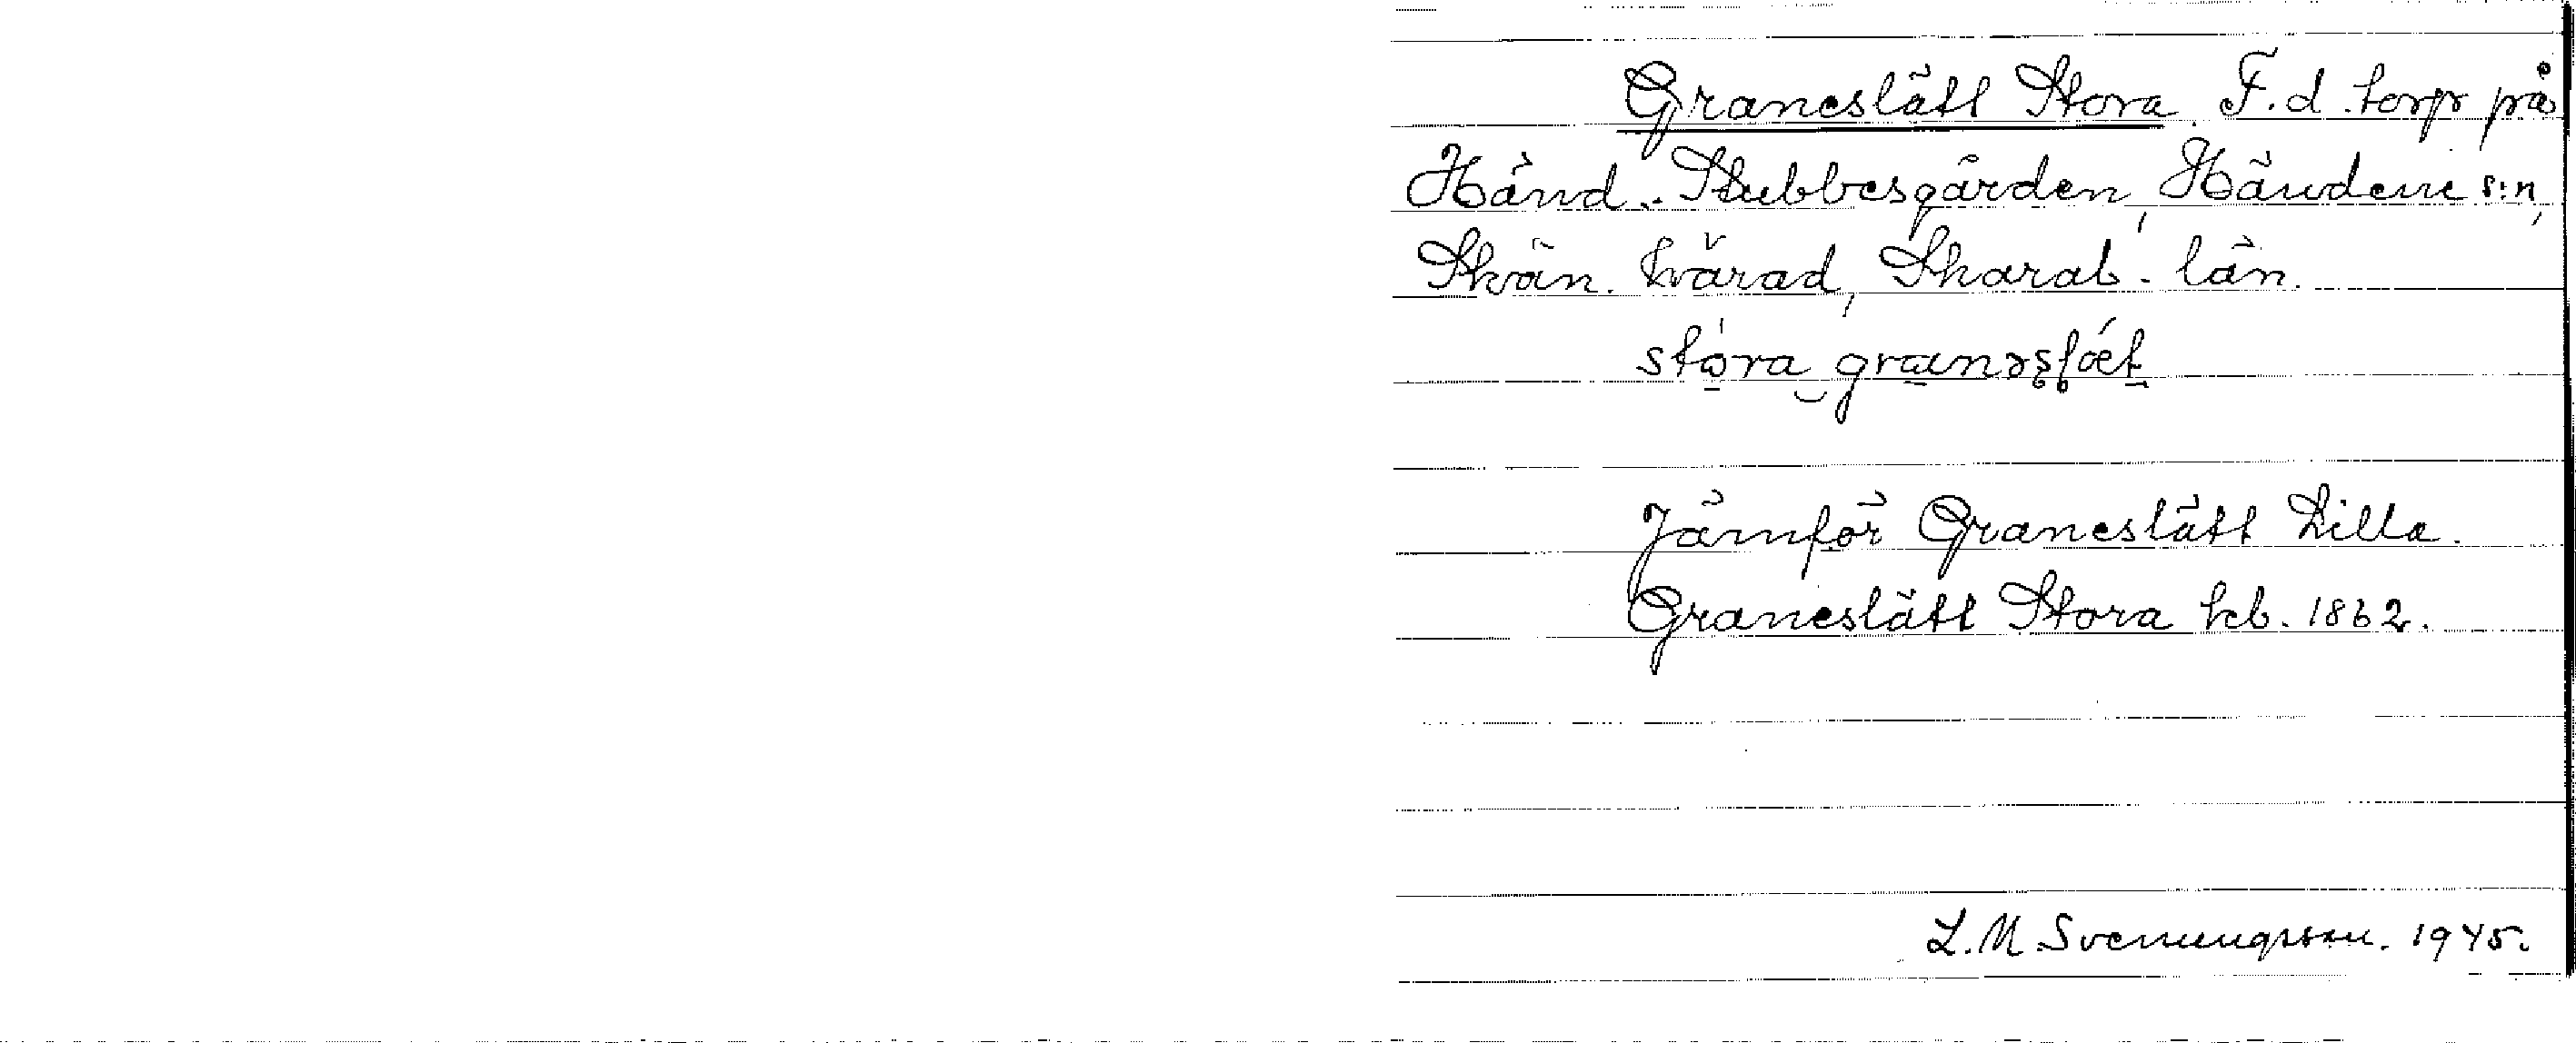 Graneslätt Stora. F.d. torp på
Händ. Stubbesgården, Händene s:n,
Skån. härad, Skarab. län.
Jämför Graneslätt Lilla.
Graneslätt Stora hcb. 1862.
L. M. Svenungsson. 1945.